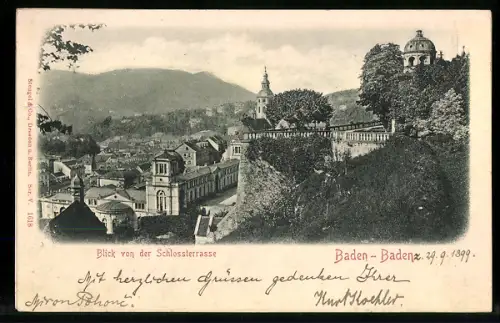 Stengel & Co., Dresden u. Berlin. Ser. V. 1618
Blick von der Schlossterrasse
Baden-Baden 29.9.1899.
Mit herzlichen Grüssen gedenken Ihrer
Kurt Koehler
Myron